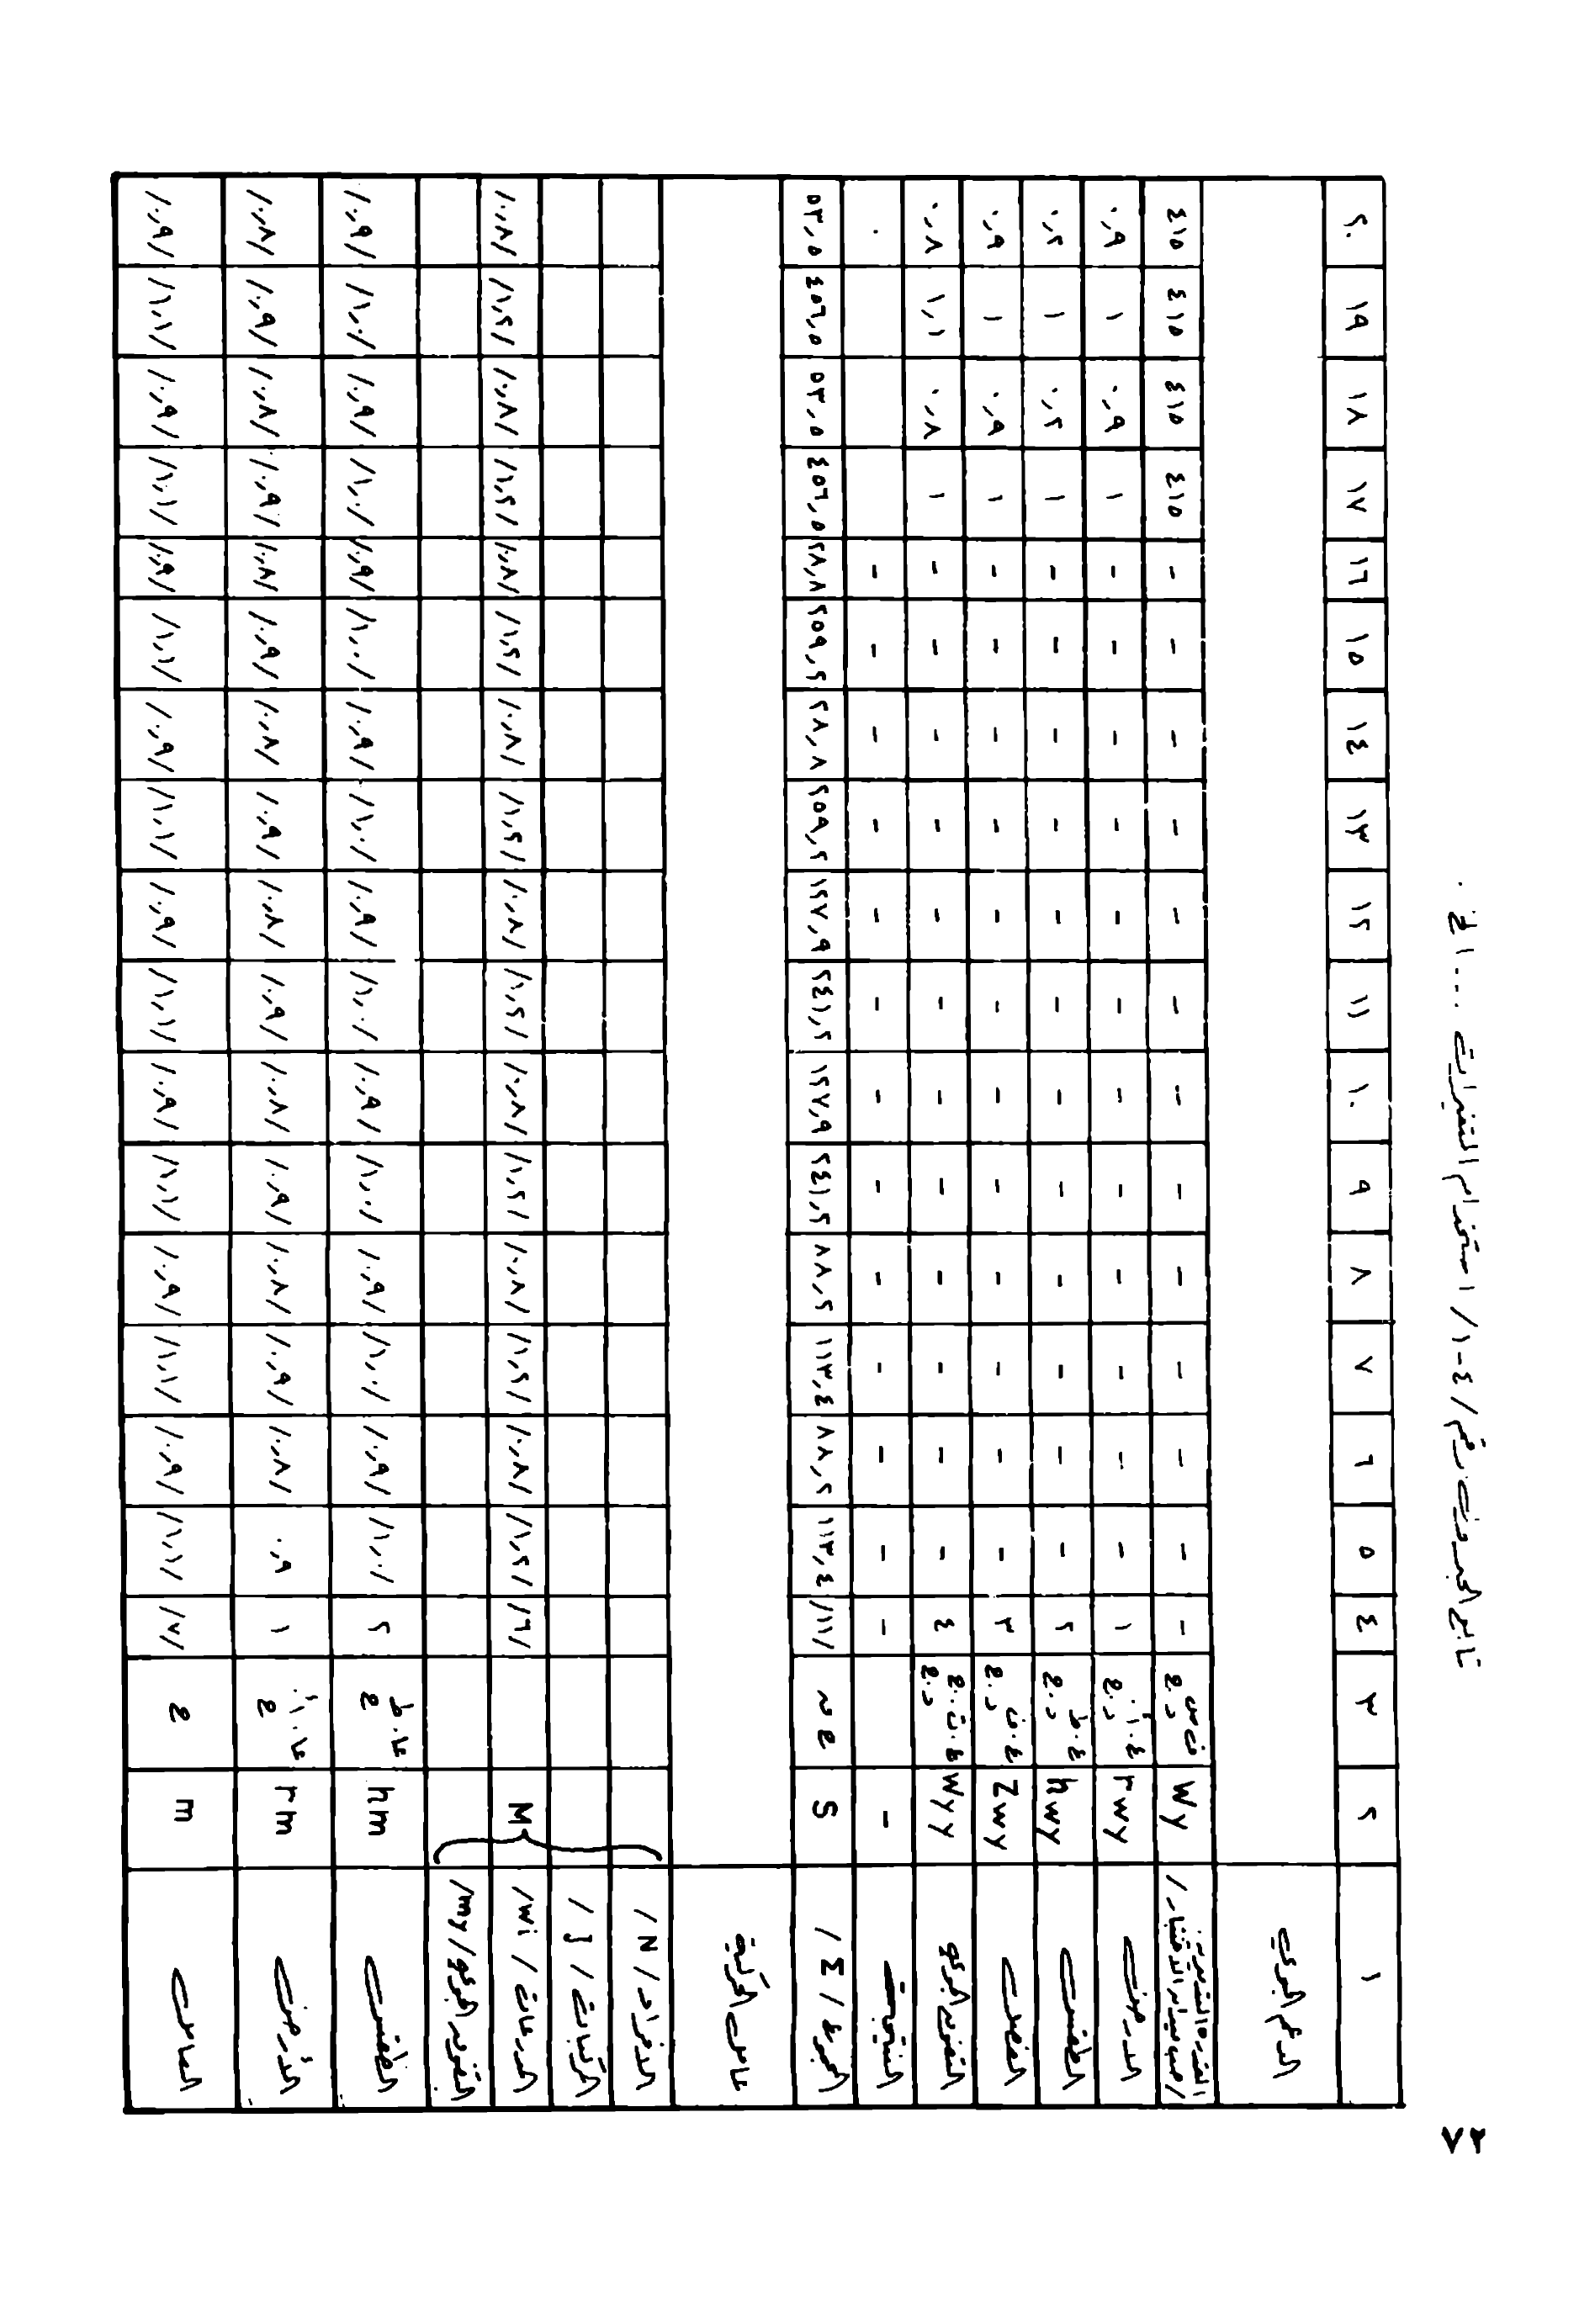 ٧٢
تابع الجدول رقم /٤-١/ استخدام المتغيرات ....الخ .
١ ٢ ٣ ٤ ٥ ٦ ٧ ٨ ٩ ١٠ ١١ ١٢ ١٣ ١٤ ١٥ ١٦ ١٧ ١٨ ١٩ ٢٠
الدعم الجوي
القدرة التدميرية /حسب ميدان الاختبار/ Wy ف س د.ع - - - - - - - - - - - - - ٤١٥ ٤١٥ ٤١٥ ٤١٥
الأرض rwy ع.أ. د.ع ١ - - - - - - - - - - - - ١ ٠,٩ ١ ٠,٩
الطقس hwy ع.ط د.ع ٢ - - - - - - - - - - - - ١ ٠,٢ ١ ٠,٢
الفصل Zwy ع.ف د.ع ٣ - - - - - - - - - - - - ١ ٠,٩ ١ ٠,٩
التفوق الجوي Wyy ع.ت.ج د.ع ٤ - - - - - - - - - - - - ١ ٠,٨ ١,١ ٠,٨
النتيجة - - - - - - - - - - - - - - ٠
المجموع /Σ/ S ع ن /١١/ ١١٣,٤ ٨٨,٢ ١١٣,٤ ٨٨,٢ ٢٤١,٢ ١٢٧,٩ ٢٤١,٢ ١٢٧,٩ ٢٥٩,٢ ٢٨,٨ ٢٥٩,٢ ٢٨,٨ ٤٥٦,٥ ٥٣,٥ ٤٥٦,٥ ٥٣,٥
عامل الحركية
الأفراد /N/
المركبات /J/
المدرعات /wi/ M /٦/ /١,٢/ /٠,٨/ /١,٢/ /٠,٨/ /١,٢/ /٠,٨/ /١,٢/ /٠,٨/ /١,٢/ /٠,٨/ /١,٢/ /٠,٨/ /١,٢/ /٠,٨/ /١,٢/ /٠,٨/
التفوق الجوي /my/
الطقس hm عا.ط ع ٢ /١,٠/ /٠,٩/ /١,٠/ /٠,٩/ /١,٠/ /٠,٩/ /١,٠/ /٠,٩/ /١,٠/ /٠,٩/ /١,٠/ /٠,٩/ /١,٠/ /٠,٩/ /١,٠/ /٠,٩/
الأرض rm عا.أ. ع ١ ٠,٩ /٠,٨/ /٠,٩/ /٠,٨/ /٠,٩/ /٠,٨/ /٠,٩/ /٠,٨/ /٠,٩/ /٠,٨/ /٠,٩/ /٠,٨/ /٠,٩/ /٠,٨/ /٠,٩/ /٠,٨/
العامل m ع /٧/ /١,١/ /٠,٩/ /١,١/ /٠,٩/ /١,١/ /٠,٩/ /١,١/ /٠,٩/ /١,١/ /٠,٩/ /١,١/ /٠,٩/ /١,١/ /٠,٩/ /١,١/ /٠,٩/